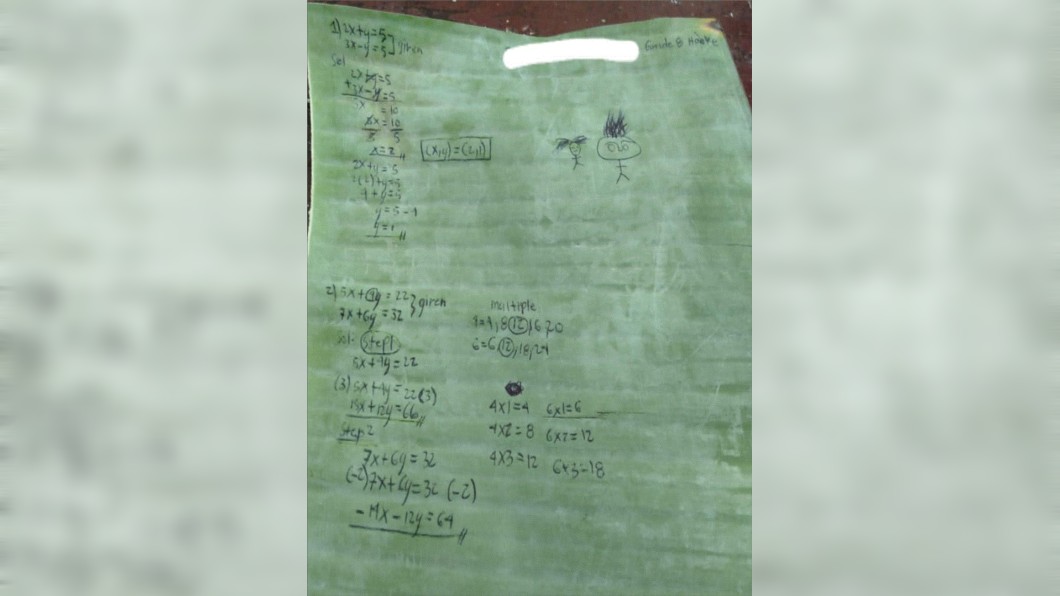 1) 2x+y=5
3x-y=5 ] given
Grade 8
Sol
2x+y=5
+3x-y=5
5x = 10
5x = 10
5 5
x=2
(x,y)=(2,1)
2x+y=5
2(2)+y=5
4+y=5
y=5-4
y=1
2) 5x+4y=22
7x+6y=32 } given
multiple
4=4,8,12,16,20
6=6,12,18,24
sol. Step1
5x+4y=22
(3)5x+4y=22(3)
15x+12y=66
4x1=4 6x1=6
4x2=8 6x2=12
4x3=12 6x3=18
Step2
7x+6y=32
(-2)7x+6y=32(-2)
-14x-12y=64